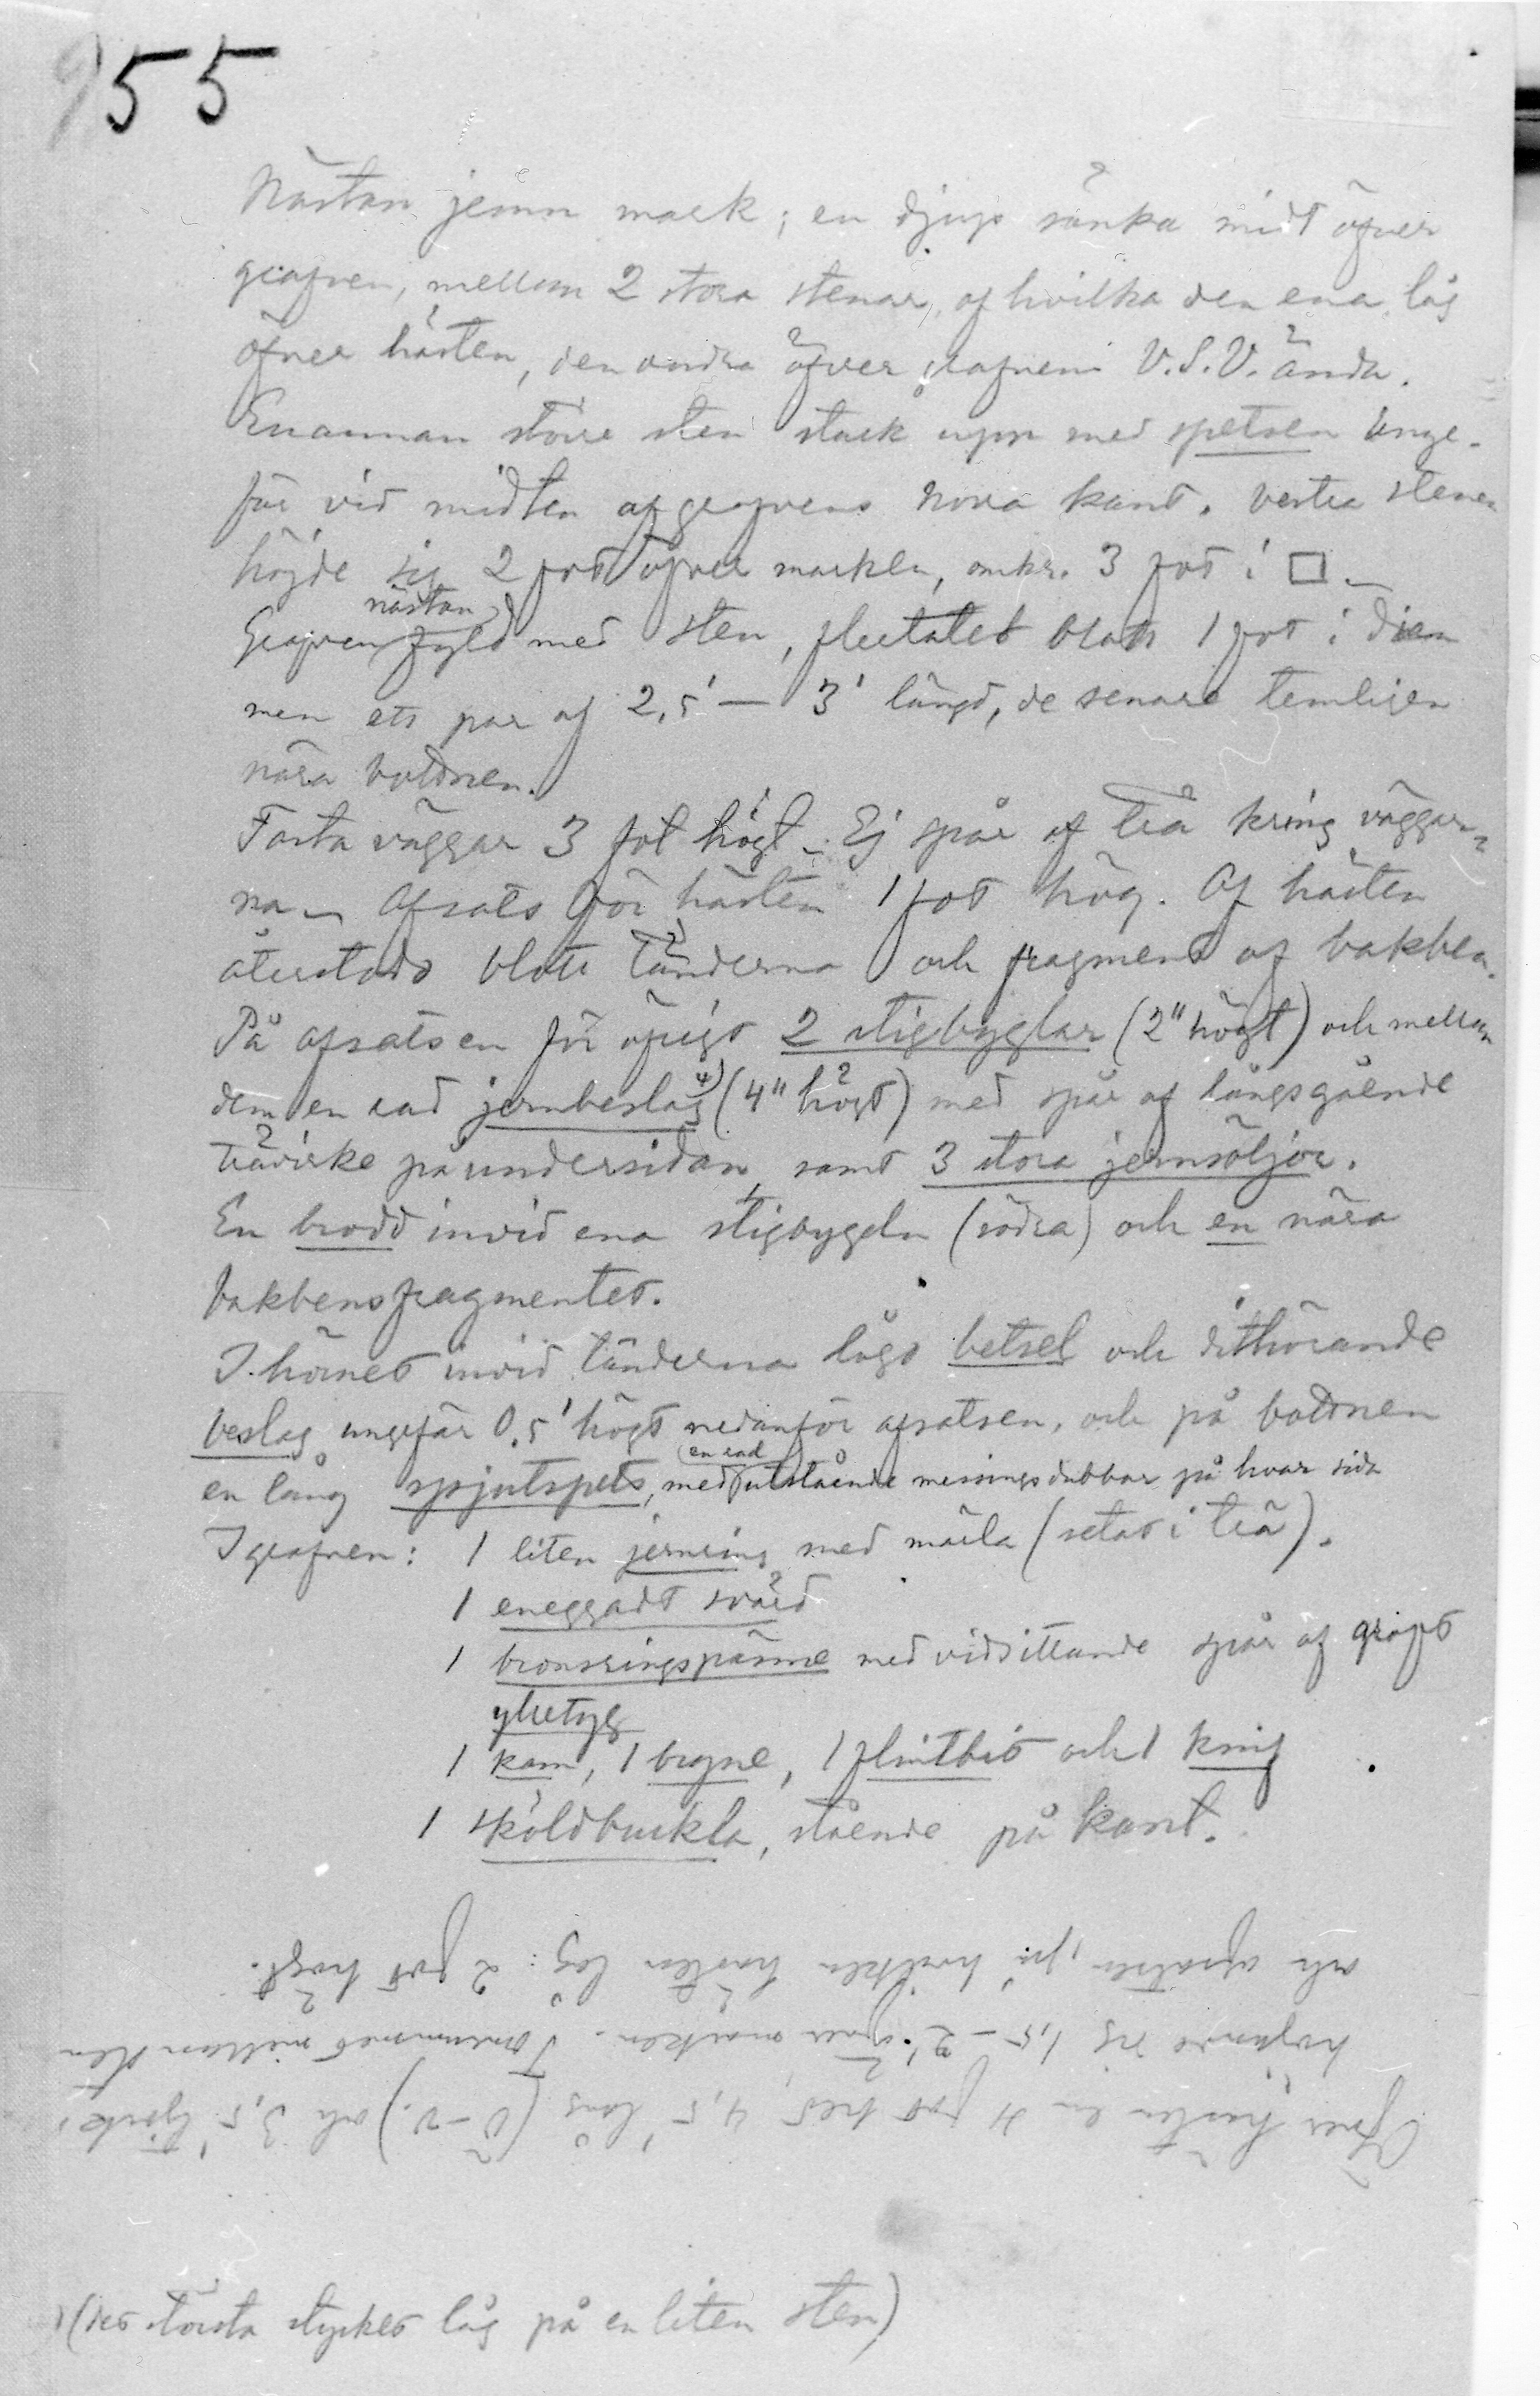 955
Nästan jemn mark; en djup sänka midt öfver
grafven, mellan 2 stora stenar, af hvilka den ena låg
öfver hästen, den andra öfver grafvens V.S.V. ända.
En annan större sten stack upp med spetsen unge-
fär vid midten af grafvens norra kant. Vestra stenen
höjde sig 2 fot öfver marken, omkr. 3 fot i □ –
Grafven nästan fyld med sten, flertalet blott 1 fot i diam
men ett par af 2,5' – 3' längd, de senare temligen
nära bottnen.
Fasta väggar 3 fot högt – Ej spår af trä kring väggar-
na – Afsats för hästen 1 fot hög. Af hästen
återstodo blott tänderna och fragment af bakben.
På afsatsen för öfrigt 2 stigbyglar (2" högt) och mellan
dem en rad jernbeslag 4) (4" högt) med spår af långsgående
trävirke på undersidan, samt 3 stora jernsöljor.
En brodd invid ena stigbygeln (södra) och en nära
bakbensfragmentet.
I hörnet invid tänderna lågo betsel och dithörande
beslag ungefär 0,5' högt nedanför afsatsen, och på bottnen
en lång spjutspets, med (en rad) utstående messingsdubbar på hvar sida
I grafven: 1 liten jernring med märla (setat i trä).
1 eneggadt svärd
1 bronsringspänne med vidsittande spår af gröft
ylletyg
1 kam, 1 bryne, 1 flintbit och 1 knif
1 sköldbuckla, stående på kant.
Öfver hästen en 4 fot bred 4,5' lång (Ö–V.) och 3,5' tjock,
höjande sig 1,5 – 2' öfver marken. Tomrummet mellan sten
och afsatsen, på hvilken hästen låg: 2 fot högt.
(det största stycket låg på en liten sten)